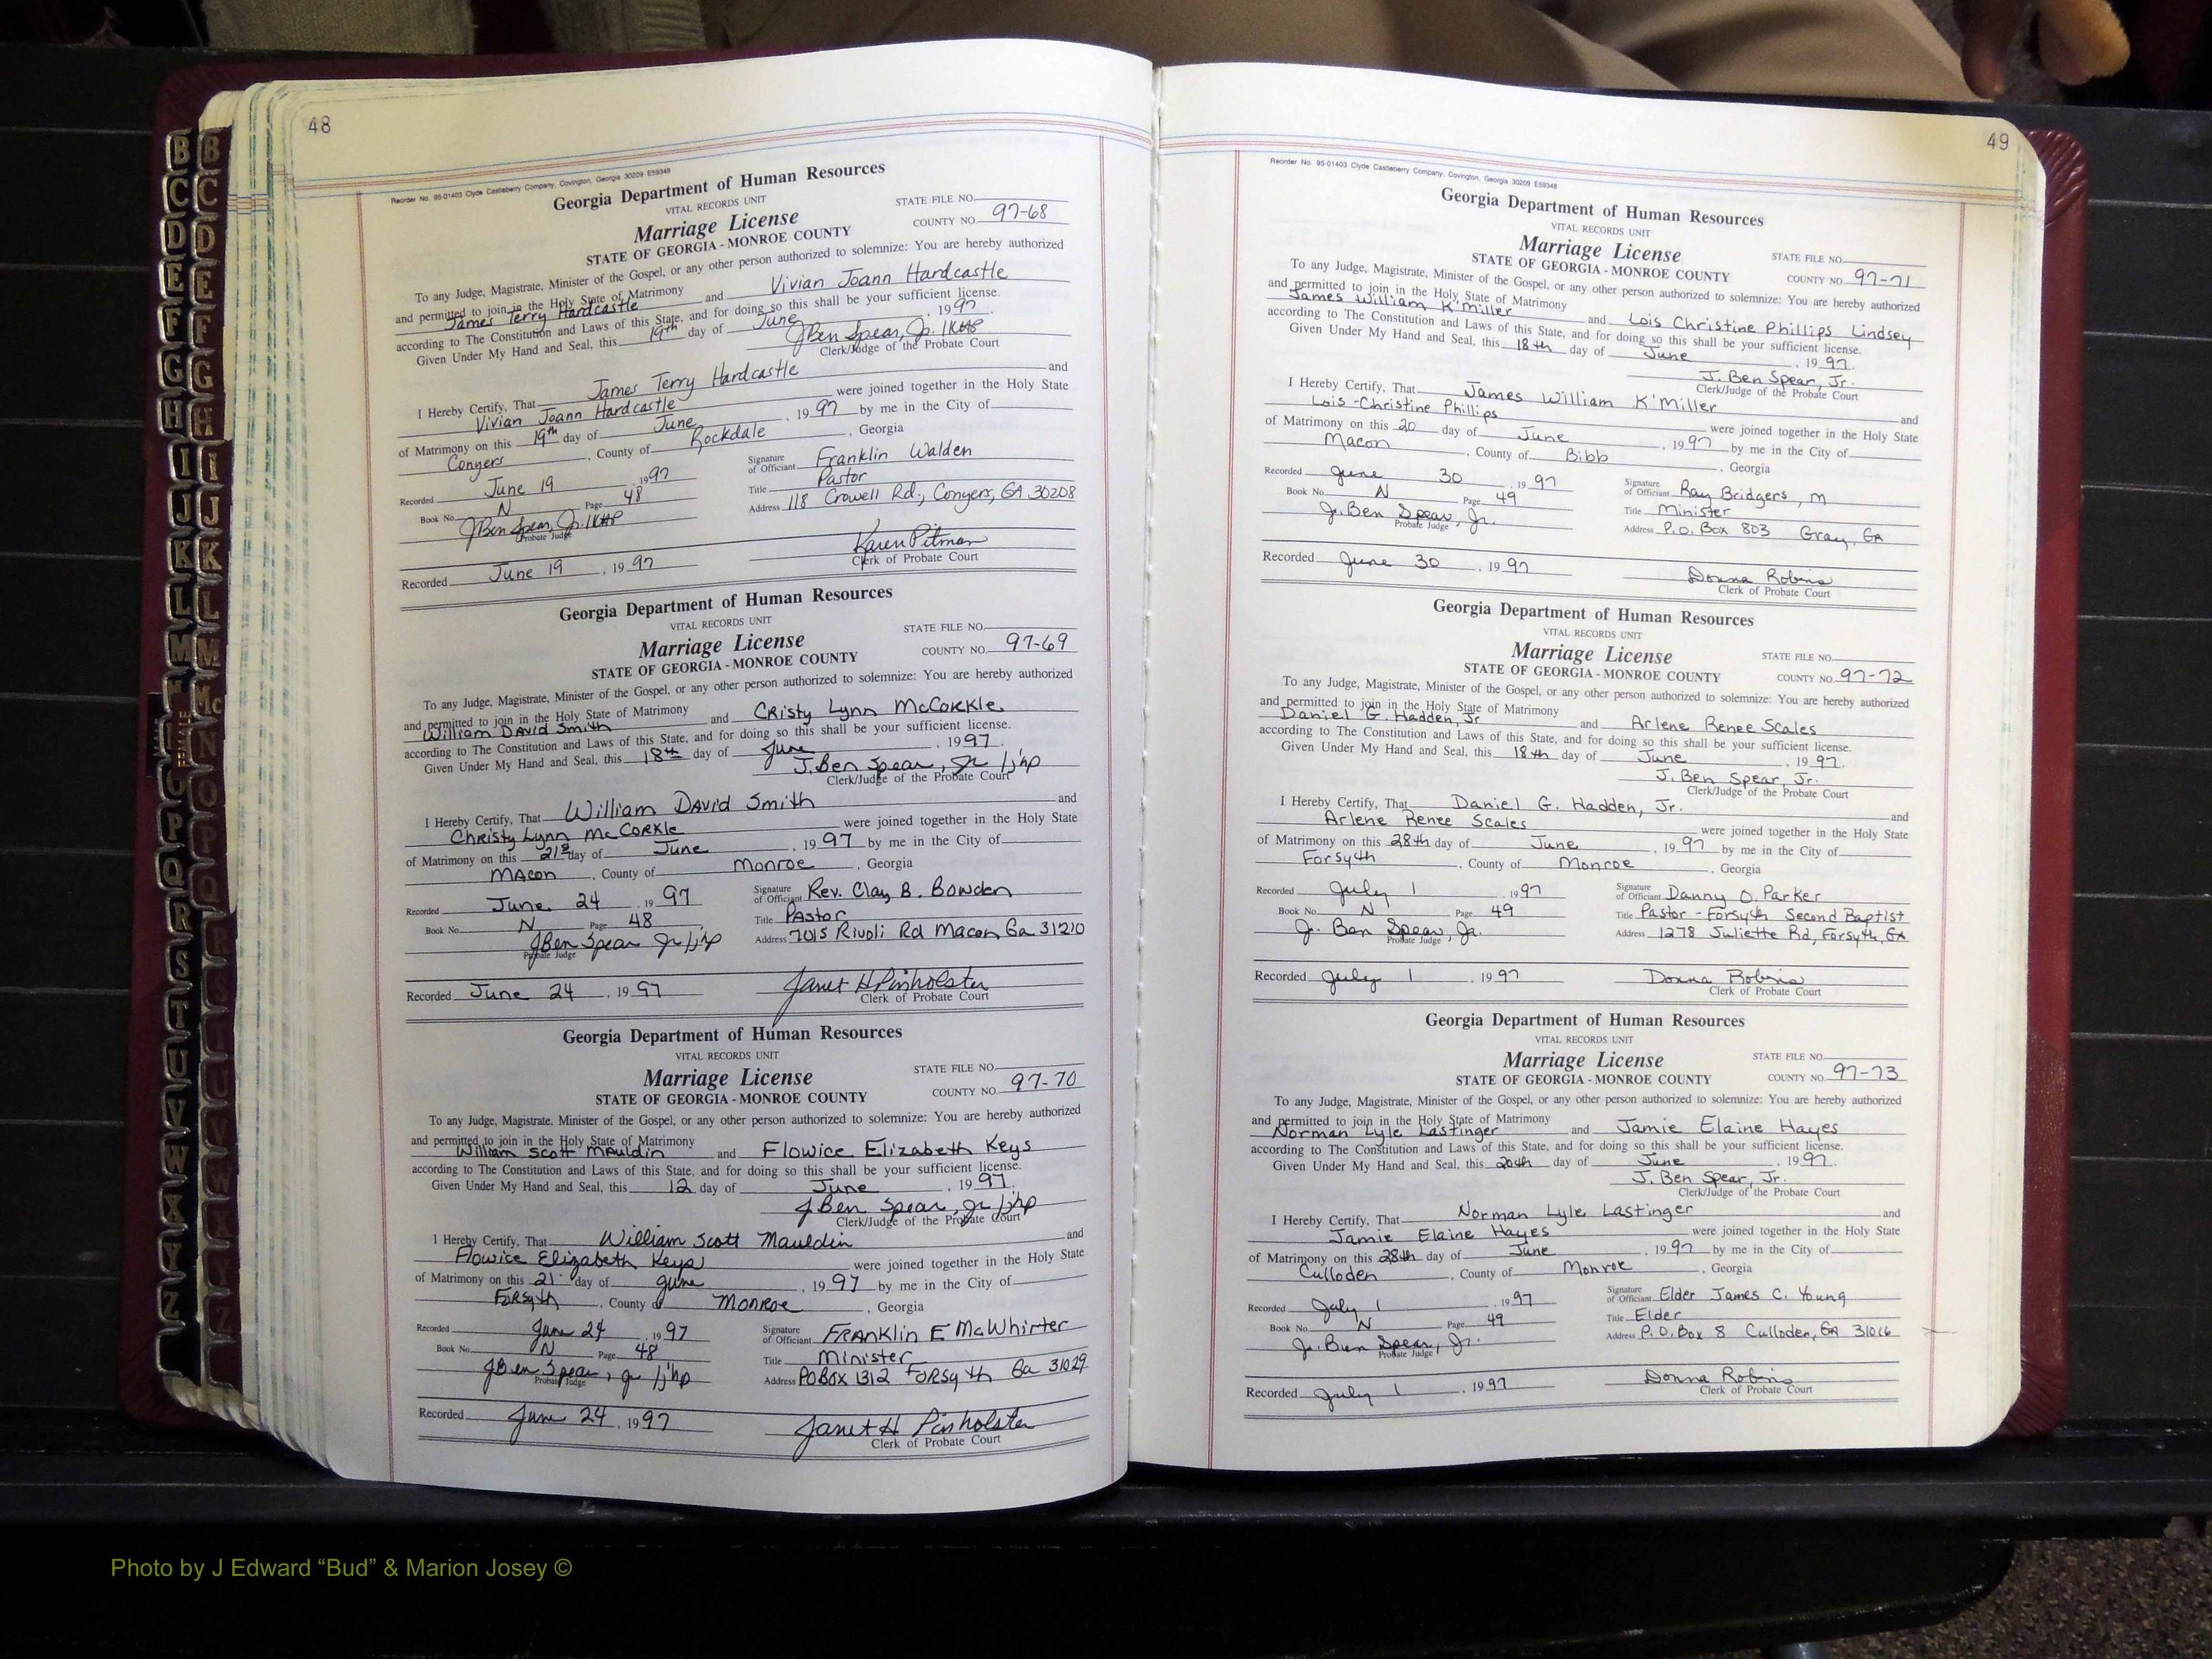 48
Reorder No. 95-01403 Clyde Castleberry Company, Covington, Georgia 30209 E59348
Georgia Department of Human Resources
VITAL RECORDS UNIT
Marriage License
STATE OF GEORGIA - MONROE COUNTY
STATE FILE NO.
COUNTY NO. 97-68
To any Judge, Magistrate, Minister of the Gospel, or any other person authorized to solemnize: You are hereby authorized
and permitted to join in the Holy State of Matrimony
James Terry Hardcastle and Vivian Joann Hardcastle
according to The Constitution and Laws of this State, and for doing so this shall be your sufficient license.
Given Under My Hand and Seal, this 19th day of June, 1997
J Ben Spear, Jr. /KHP
Clerk/Judge of the Probate Court
I Hereby Certify, That James Terry Hardcastle and
Vivian Joann Hardcastle were joined together in the Holy State
of Matrimony on this 19th day of June, 1997 by me in the City of
Conyers, County of Rockdale, Georgia
Recorded June 19 1997
Book No. N Page 48
J Ben Spear, Jr. /KHP
Probate Judge
Signature of Officiant Franklin Walden
Title Pastor
Address 118 Crowell Rd., Conyers, GA 30208
Recorded June 19, 1997
Karen Pitman
Clerk of Probate Court
Georgia Department of Human Resources
VITAL RECORDS UNIT
Marriage License
STATE OF GEORGIA - MONROE COUNTY
STATE FILE NO.
COUNTY NO. 97-69
To any Judge, Magistrate, Minister of the Gospel, or any other person authorized to solemnize: You are hereby authorized
and permitted to join in the Holy State of Matrimony
William David Smith and Cristy Lynn McCorkle
according to The Constitution and Laws of this State, and for doing so this shall be your sufficient license.
Given Under My Hand and Seal, this 18th day of June, 1997.
J. Ben Spear, Jr /jhp
Clerk/Judge of the Probate Court
I Hereby Certify, That William David Smith and
Christy Lynn McCorkle were joined together in the Holy State
of Matrimony on this 21st day of June, 1997 by me in the City of
Macon, County of Monroe, Georgia
Recorded June 24 1997
Book No. N Page 48
J Ben Spear Jr /jhp
Probate Judge
Signature of Officiant Rev. Clay B. Bowden
Title Pastor
Address 7015 Rivoli Rd Macon, Ga 31210
Recorded June 24, 1997
Janet H Pinholster
Clerk of Probate Court
Georgia Department of Human Resources
VITAL RECORDS UNIT
Marriage License
STATE OF GEORGIA - MONROE COUNTY
STATE FILE NO.
COUNTY NO. 97-70
To any Judge, Magistrate, Minister of the Gospel, or any other person authorized to solemnize: You are hereby authorized
and permitted to join in the Holy State of Matrimony
William Scott Mauldin and Flowice Elizabeth Keys
according to The Constitution and Laws of this State, and for doing so this shall be your sufficient license.
Given Under My Hand and Seal, this 12 day of June, 1997.
J Ben Spear, Jr /jhp
Clerk/Judge of the Probate Court
I Hereby Certify, That William Scott Mauldin and
Flowice Elizabeth Keys were joined together in the Holy State
of Matrimony on this 21 day of June, 1997 by me in the City of
Forsyth, County of Monroe, Georgia
Recorded June 24 1997
Book No. N Page 48
J Ben Spear, Jr /jhp
Probate Judge
Signature of Officiant Franklin E McWhirter
Title Minister
Address PO Box 1312 Forsyth Ga 31029
Recorded June 24, 1997
Janet H Pinholster
Clerk of Probate Court
49
Reorder No. 95-01403 Clyde Castleberry Company, Covington, Georgia 30209 E59348
Georgia Department of Human Resources
VITAL RECORDS UNIT
Marriage License
STATE OF GEORGIA - MONROE COUNTY
STATE FILE NO.
COUNTY NO. 97-71
To any Judge, Magistrate, Minister of the Gospel, or any other person authorized to solemnize: You are hereby authorized
and permitted to join in the Holy State of Matrimony
James William K'Miller and Lois Christine Phillips Lindsey
according to The Constitution and Laws of this State, and for doing so this shall be your sufficient license.
Given Under My Hand and Seal, this 18th day of June, 1997.
J. Ben Spear, Jr.
Clerk/Judge of the Probate Court
I Hereby Certify, That James William K'Miller and
Lois Christine Phillips were joined together in the Holy State
of Matrimony on this 20 day of June, 1997 by me in the City of
Macon, County of Bibb, Georgia
Recorded June 30, 1997
Book No. N Page 49
J. Ben Spear, Jr.
Probate Judge
Signature of Officiant Ray Bridgers, M
Title Minister
Address P.O. Box 803 Gray, GA
Recorded June 30, 1997
Donna Robins
Clerk of Probate Court
Georgia Department of Human Resources
VITAL RECORDS UNIT
Marriage License
STATE OF GEORGIA - MONROE COUNTY
STATE FILE NO.
COUNTY NO. 97-72
To any Judge, Magistrate, Minister of the Gospel, or any other person authorized to solemnize: You are hereby authorized
and permitted to join in the Holy State of Matrimony
Daniel G. Hadden, Jr and Arlene Renee Scales
according to The Constitution and Laws of this State, and for doing so this shall be your sufficient license.
Given Under My Hand and Seal, this 18th day of June, 1997.
J. Ben Spear, Jr.
Clerk/Judge of the Probate Court
I Hereby Certify, That Daniel G. Hadden, Jr. and
Arlene Renee Scales were joined together in the Holy State
of Matrimony on this 28th day of June, 1997 by me in the City of
Forsyth, County of Monroe, Georgia
Recorded July 1, 1997
Book No. N Page 49
J. Ben Spear, Jr.
Probate Judge
Signature of Officiant Danny O. Parker
Title Pastor - Forsyth Second Baptist
Address 1278 Juliette Rd, Forsyth, GA
Recorded July 1, 1997
Donna Robins
Clerk of Probate Court
Georgia Department of Human Resources
VITAL RECORDS UNIT
Marriage License
STATE OF GEORGIA - MONROE COUNTY
STATE FILE NO.
COUNTY NO. 97-73
To any Judge, Magistrate, Minister of the Gospel, or any other person authorized to solemnize: You are hereby authorized
and permitted to join in the Holy State of Matrimony
Norman Lyle Lastinger and Jamie Elaine Hayes
according to The Constitution and Laws of this State, and for doing so this shall be your sufficient license.
Given Under My Hand and Seal, this 20th day of June, 1997.
J. Ben Spear, Jr.
Clerk/Judge of the Probate Court
I Hereby Certify, That Norman Lyle Lastinger and
Jamie Elaine Hayes were joined together in the Holy State
of Matrimony on this 28th day of June, 1997 by me in the City of
Culloden, County of Monroe, Georgia
Recorded July 1, 1997
Book No. N Page 49
J. Ben Spear, Jr.
Probate Judge
Signature of Officiant Elder James C. Young
Title Elder
Address P.O. Box 8 Culloden, GA 31016
Recorded July 1, 1997
Donna Robins
Clerk of Probate Court
B B
C C
D D
E E
F F
G G
H H
I I
J J
K K
L L
M M
Mc
N
O
P P
Q Q
R R
S S
T T
U U
V V
W W
X X
Y Y
Z Z
Photo by J Edward “Bud” & Marion Josey ©